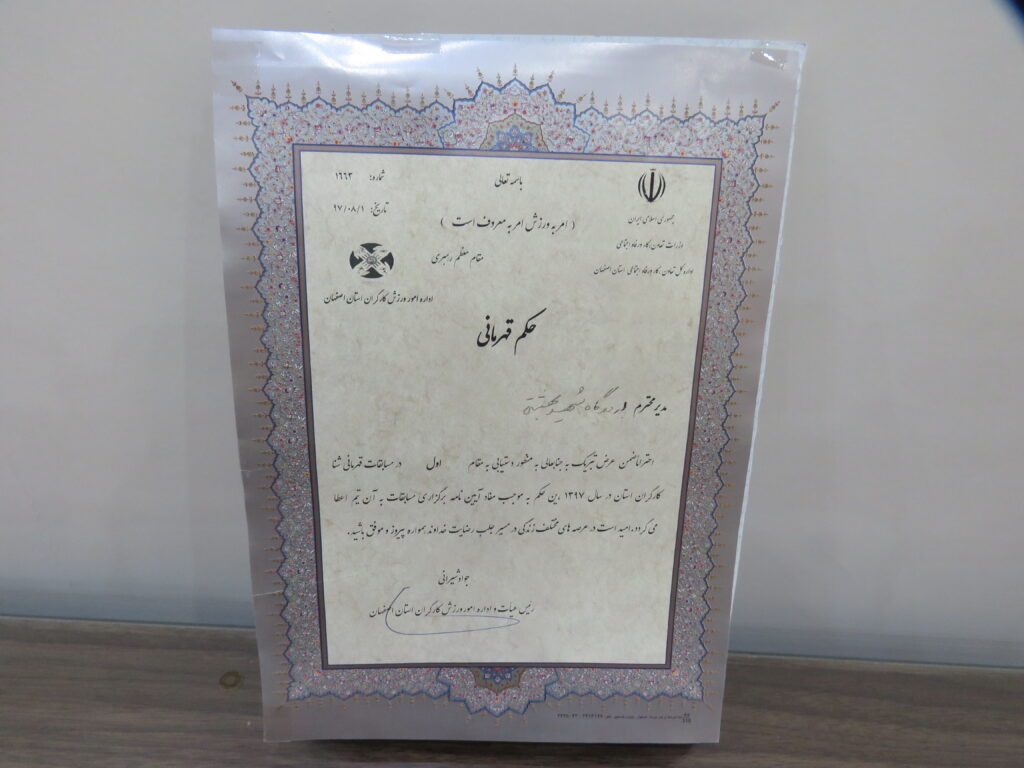 باسمه تعالی
شماره: ۱۶۶۳
تاریخ: ۹۷/۰۸/۱
جمهوری اسلامی ایران
وزارت تعاون، کار و رفاه اجتماعی
اداره کل تعاون، کار و رفاه اجتماعی استان اصفهان
( امر به ورزش امر به معروف است )
مقام معظم رهبری
اداره امور ورزش کارگران استان اصفهان
حکم قهرمانی
مدیر محترم
احتراماً ضمن عرض تبریک به جنابعالی به منظور دستیابی به مقام اول در مسابقات قهرمانی شنا
کارگران استان در سال ۱۳۹۷ ،ین حکم به موجب مفاد آیین نامه برگزاری مسابقات به آن تیم اعطا
می گردد. امید است در عرصه های مختلف زندگی در مسیر جلب رضایت خداوند همواره پیروز و موفق باشید.
جواد شیرانی
رئیس هیات و اداره امور ورزش کارگران استان اصفهان